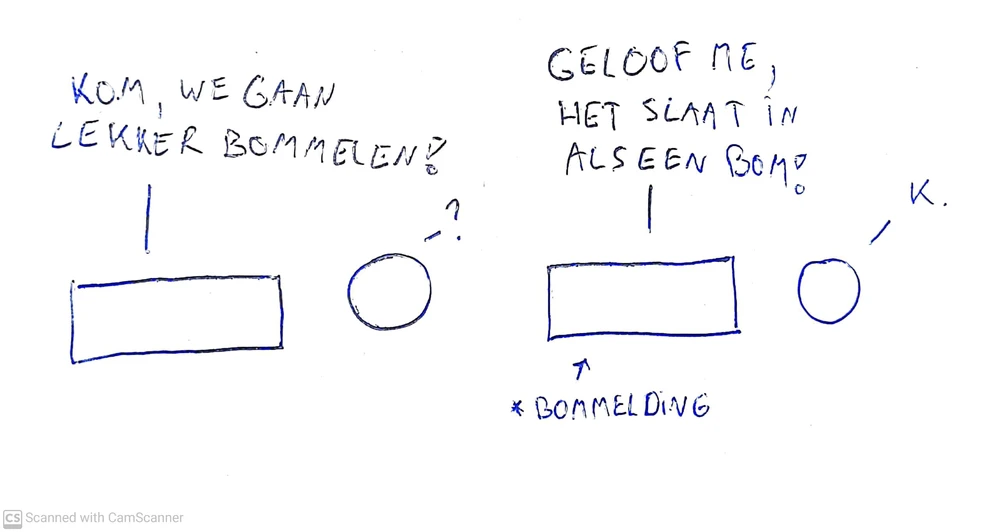 KOM, WE GAAN
LEKKER BOMMELEN!
?
GELOOF ME,
HET SLAAT IN
ALS EEN BOM!
K.
* BOMMELDING
CS Scanned with CamScanner